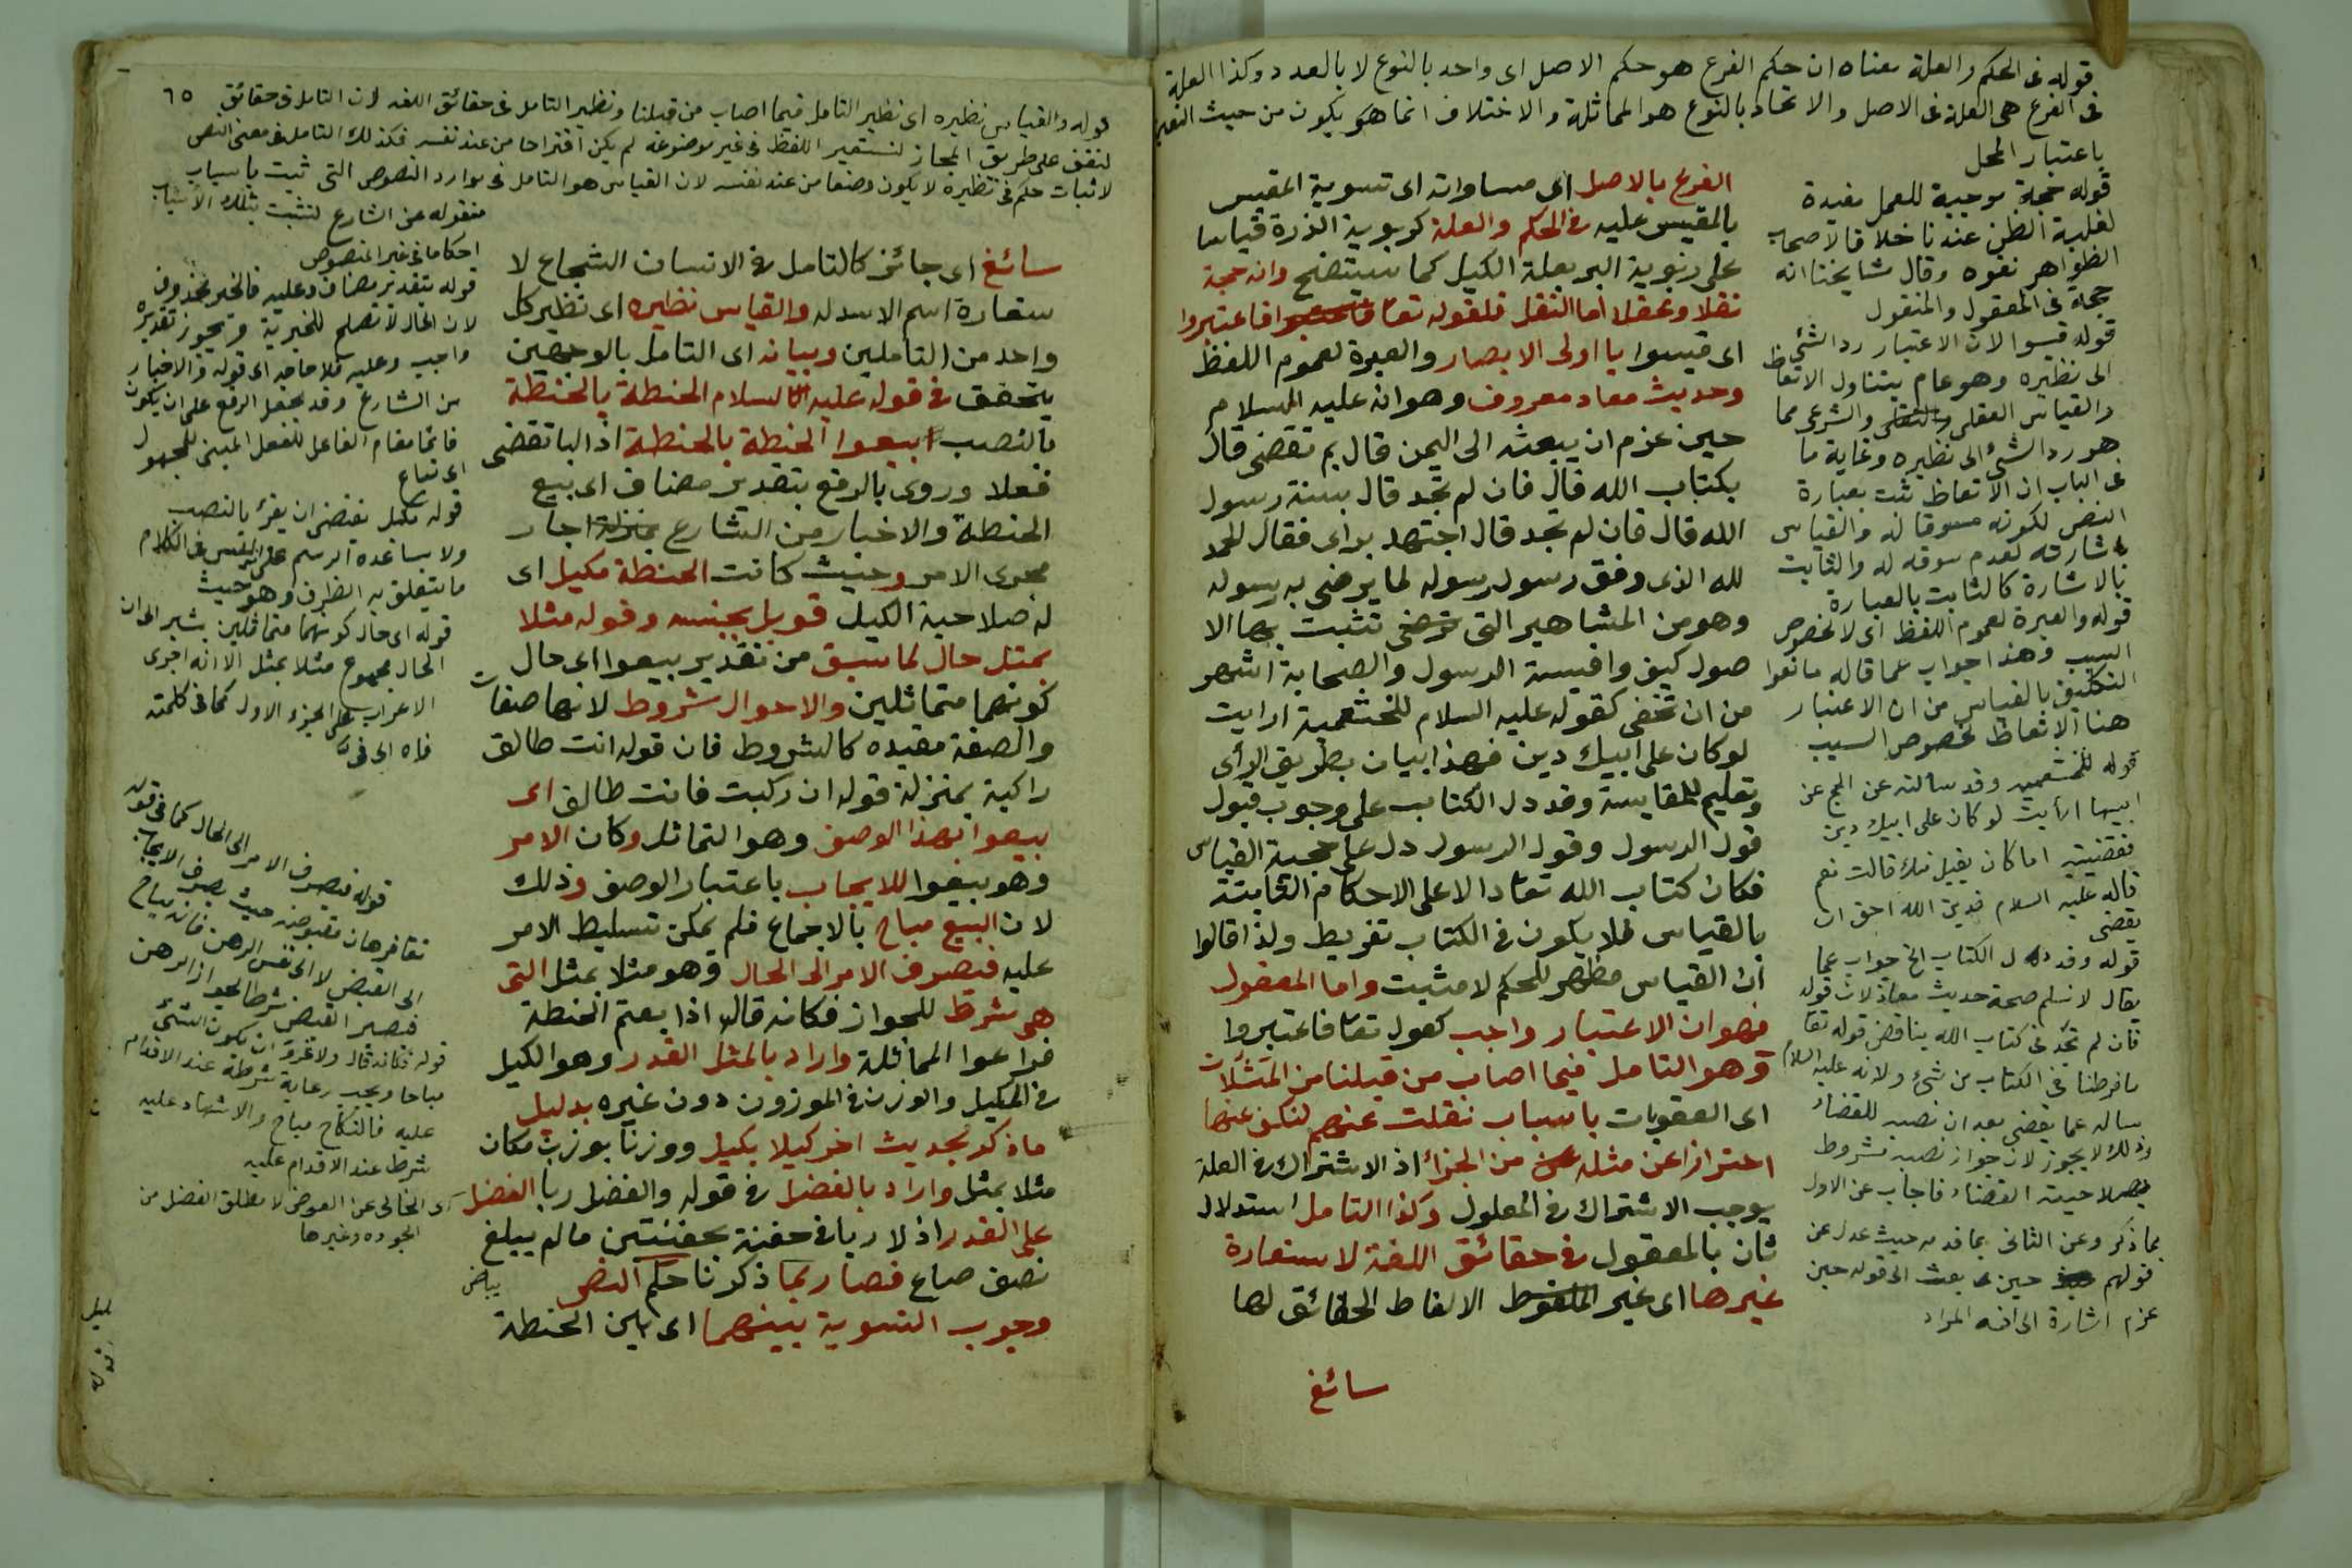 قوله في الحكم والعلة معناه ان حكم الفرع هو حكم الاصل اى واحد بالنوع لا بالعدد وكذا العلة
فى الفرع هى العلة فى الاصل والاتحاد بالنوع هو المماثلة والاختلاف انما هو يكون من حيث
باعتبار المحل
قوله حجة موجبة للعمل مفيدة
لغلبة الظن عندنا خلافا لاصحاب
الظواهر نفوه وقال مشايخنا انه
حجة فى المعقول والمنقول
قوله قيسوا لان الاعتبار رد الشئ
الى نظيره وهو عام يتناول الاتعاظ
والقياس العقلى والشرعى مما
هو رد الشئ الى نظيره وغاية ما
فى الباب ان الاتعاظ ثبت بعبارة
النص لكونه مسوقا له والقياس
باشارته لعدم سوقه له والثابت
بالاشارة كالثابت بالعبارة
قوله والعبرة لعموم اللفظ اى لا لخصوص
السبب وهذا جواب عما قاله مانعوا
التكليف بالقياس من ان الاعتبار
هنا الاتعاظ لخصوص السبب
قوله للخثعمية وقد سالته عن الحج عن
ابيها ارأيت لو كان على ابيك دين
فقضيتيه اما كان يقبل منك قالت نعم
قال عليه السلام فدين الله احق ان
يقضى
قوله وقد دل الكتاب الخ جواب عما
يقال لا نسلم صحة حديث معاذ لان قوله
فان لم تجد فى كتاب الله يناقض قوله تعا
ما فرطنا فى الكتاب من شئ ولانه عليه السلام
ساله عما يقضى بعد ان نصبه للقضاء
وذلك لا يجوز لان جواز نصبه مشروط
بصلاحيته القضاء فاجاب عن الاول
بما ذكر وعن الثانى بما قدمه حيث عدل عن
قولهم حين بعث الى قوله حين
عزم اشارة الى انه المراد
الفرع بالاصل اى مساواته اى تسوية المقيس
بالمقيس عليه فى الحكم والعلة كربوية الذرة قياسا
على ربوية البر بعلة الكيل كما سيتضح وانه حجة
نقلا وعقلا اما النقل فلقوله تعا فاعتبروا
اى قيسوا يا اولى الابصار والعبرة لعموم اللفظ
وحديث معاد معروف وهو انه عليه السلام
حين عزم ان يبعثه الى اليمن قال بم تقضى قال
بكتاب الله قال فان لم تجد قال بسنة رسول
الله قال فان لم تجد قال اجتهد براى فقال الحمد
لله الذى وفق رسول رسوله لما يرضى به رسوله
وهو من المشاهير التى تثبت بها الا
صول كيف واقيسة الرسول والصحابة اشهر
من ان تخفى كقوله عليه السلام للخثعمية ارايت
لو كان على ابيك دين فهذا بيان بطريق الرأى
وتعليم للمقايسة وقد دل الكتاب على وجوب قبول
قول الرسول وقول الرسول دل على حجية القياس
فكان كتاب الله تعا دالا على الاحكام الثابتة
بالقياس فلا يكون فى الكتاب تفريط ولذا قالوا
ان القياس مظهر للحكم لا مثبت واما المعقول
فهو ان الاعتبار واجب كقول تعا فاعتبروا
وهو التامل فيما اصاب من قبلنا من المثلات
اى العقوبات باسباب نقلت عنهم لنكف عنها
احترازا عن مثله من الجزاء اذ الاشتراك فى العلة
يوجب الاشتراك فى المعلول وكذا التامل استدلال
ثان بالمعقول فى حقائق اللغة لاستعارة
غيرها اى غير الالفاظ الحقائق لها
سائغ
٦٥
قوله والقياس نظيره اى نظير التامل فيما اصاب من قبلنا ونظير التامل فى حقائق اللغه لان التامل فى حقائق
لنقف على طريق المجاز لنستعير اللفظ فى غير موضوعه لم يكن اقتراحا من عند نفسه فكذلك التامل فى معنى النص
لاثبات حكم فى نظيره لا يكون وضعا من عند نفسه لان القياس هو التامل فى موارد النصوص التى ثبت باسباب
منقوله عن الشارع لنثبت بتلك الاسباب
احكاما فى غير المنصوص
قوله بتقدير مضاف وعليه فالخبر محذوف
لان الحال لا تصلح للخبرية ويجوز تقديره
واجب وعليه فلا حاجه الى قوله والاخبار
من الشارع وقد يجعل الرفع على ان يكون
قائما مقام الفاعل للفعل المبنى للمجهول
اى تباع
قوله مكيل يقتضى ان يقرء بالنصب
ولا يساعده الرسم على فى الكلام
ما يتعلق به الظرف وهو حيث
قوله اى حال كونهما متماثلين يشير الى ان
الحال مجموع مثلا بمثل الا انه اجرى
الاعراب على الجزء الاول كما فى كلمته
فاه الى فى
قوله فيصرف الامر الى الحال كما فى قوله
تعا فرهان مقبوضه حيث يصرف الايجاب
الى القبض لا الى نفس الرهن فانه مباح
فيصير القبض شرطا لجواز الرهن
قوله فكانه قال ولا غرو ان يكون الشئ
مباحا ويجب رعاية شرطه عند الاقدام
عليه فالنكاح مباح والاشهاد عليه
شرط عند الاقدام عليه
اى الخالى عن العوض لا مطلق الفضل من
الجوده وغيرها
سائغ اى جائز كالتامل فى الانسان الشجاع لا
ستعارة اسم الاسد له والقياس نظيره اى نظير كل
واحد من التاملين وبيانه اى التامل بالوجهين
يتحقق فى قوله عليه السلام الحنطة بالحنطة
بالنصب ابيعوا الحنطة بالحنطة اذ البا تقضى
فعلا وروى بالرفع بتقدير مضاف اى بيع
الحنطة والاخبار من الشارع جار
مجرى الامر وحيث كانت الحنطة مكيل اى
له صلاحية الكيل قوبل بجنسه وقوله مثلا
بمثل حال لما سبق من تقدير بيعوا اى حال
كونهما متماثلين والاحوال شروط لانها صفات
والصفة مقيده كالشروط فان قوله انت طالق
راكبة بمنزلة قوله ان ركبت فانت طالق اى
بيعوا بهذا الوصف وهو التماثل وكان الامر
وهو بيعوا للايجاب باعتبار الوصف وذلك
لان البيع مباح بالاجماع فلم يمكن تسليط الامر
عليه فيصرف الامر الى الحال وهو مثلا بمثل التى
هى شرط للجواز فكانه قال اذا بعتم الحنطة
فراعوا المماثلة واراد بالمثل القدر وهو الكيل
فى المكيل والوزن فى الموزون دون غيره بدليل
ما ذكر بحديث اخر كيلا بكيل ووزنا بوزن مكان
مثلا بمثل واراد بالفضل فى قوله والفضل ربا الفضل
على القدر اذ لا ربا فى حفنة بحفنتين ما لم يبلغ
نصف صاع فصار بما ذكرنا حكم النص
بياض
وجوب التسوية بينهما اى بين الحنطة